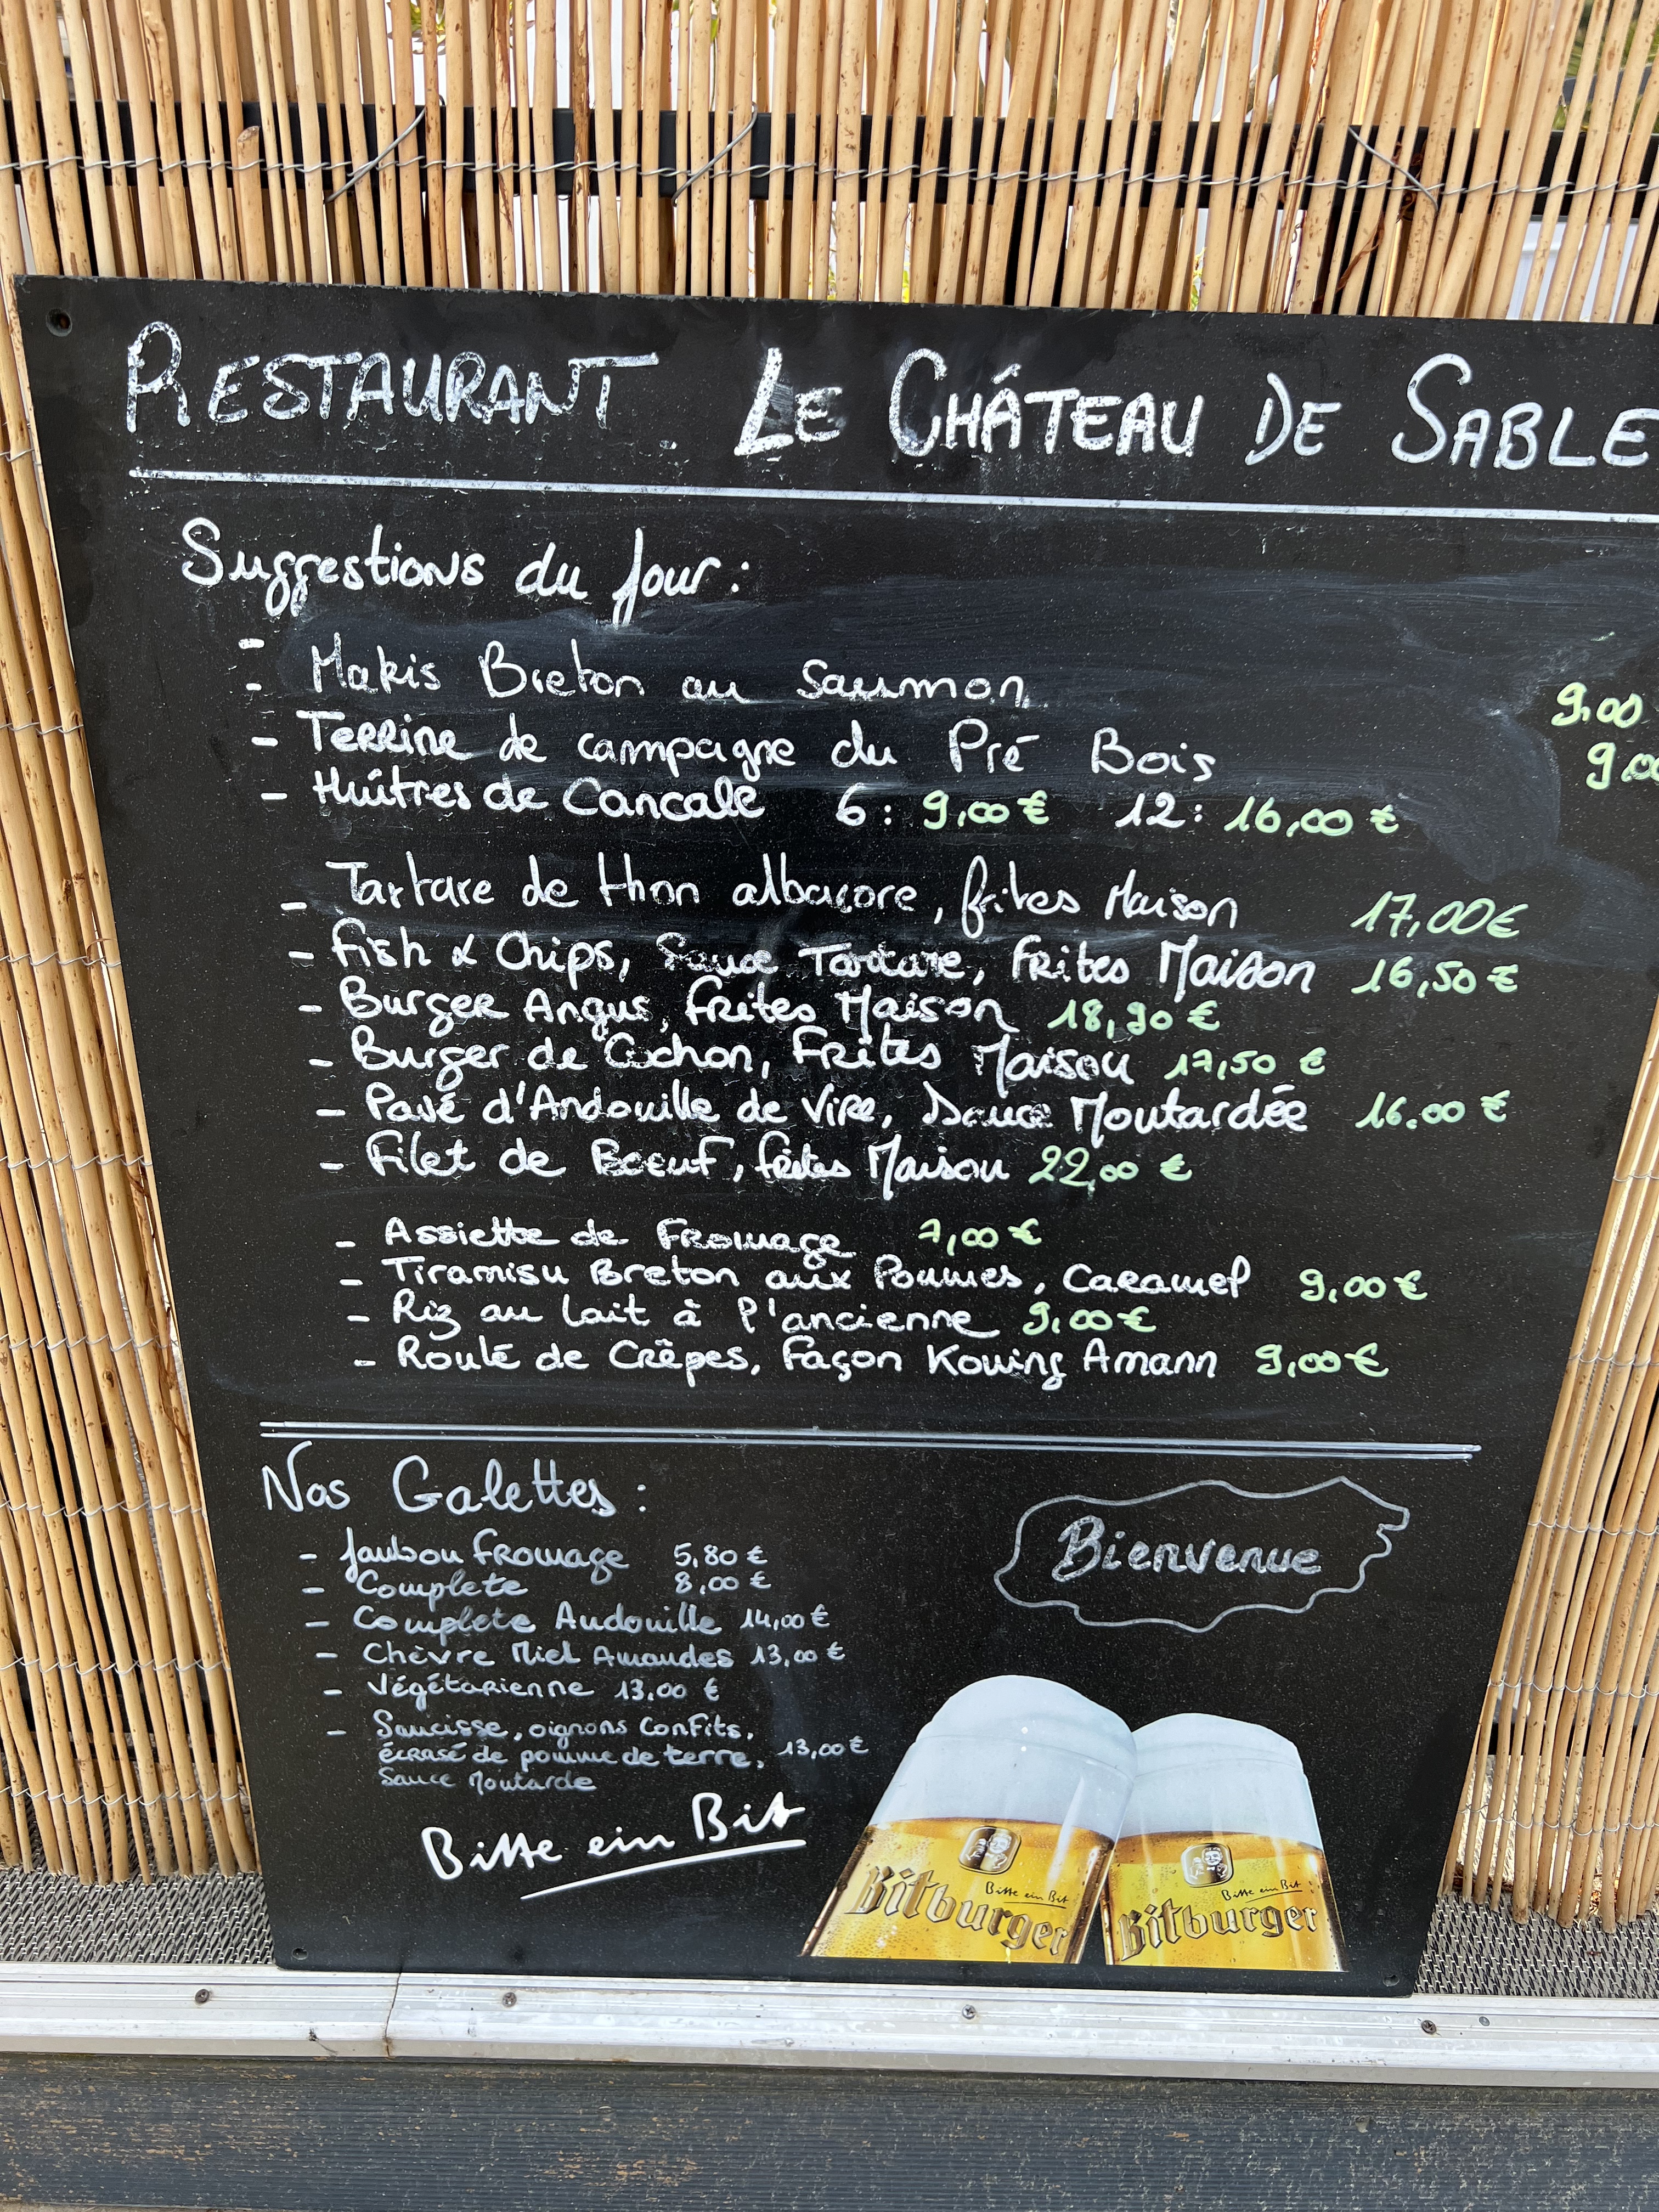 RESTAURANT. LE CHÂTEAU DE SABLE
Suggestions du Jour :
-
- Makis Breton au Saumon 9,00
- Terrine de campagne du Pré Bois 9,00
- Huîtres de Cancale 6 : 9,00 € 12 : 16,00 €
- Tartare de thon albacore, frites Maison 17,00€
- Fish & Chips, Sauce Tartare, Frites Maison 16,50 €
- Burger Angus, Frites Maison 18,90 €
- Burger de Cochon, Frites Maison 17,50 €
- Pavé d'Andouille de Vire, Sauce Moutardée 16.00 €
- Filet de Boeuf, frites Maison 22,00 €
- Assiette de Fromage 7,00 €
- Tiramisu Breton aux Pommes, Caramel 9,00 €
- Riz au lait à l'ancienne 9,00€
- Roulé de Crêpes, Façon Kouing Amann 9,00 €
Nos Galettes :
- Jambon Fromage 5,80 €
- Complete 8,00 €
- Complete Andouille 14,00 €
- Chèvre Miel Amandes 13,00 €
- Végétarienne 13,00 €
- Saucisse, oignons confits,
écrasé de pomme de terre, 13,00 €
Sauce Moutarde
Bienvenue
Bitte ein Bit
Bitte ein Bit
Bitburger
Bitte ein Bit
Bitburger